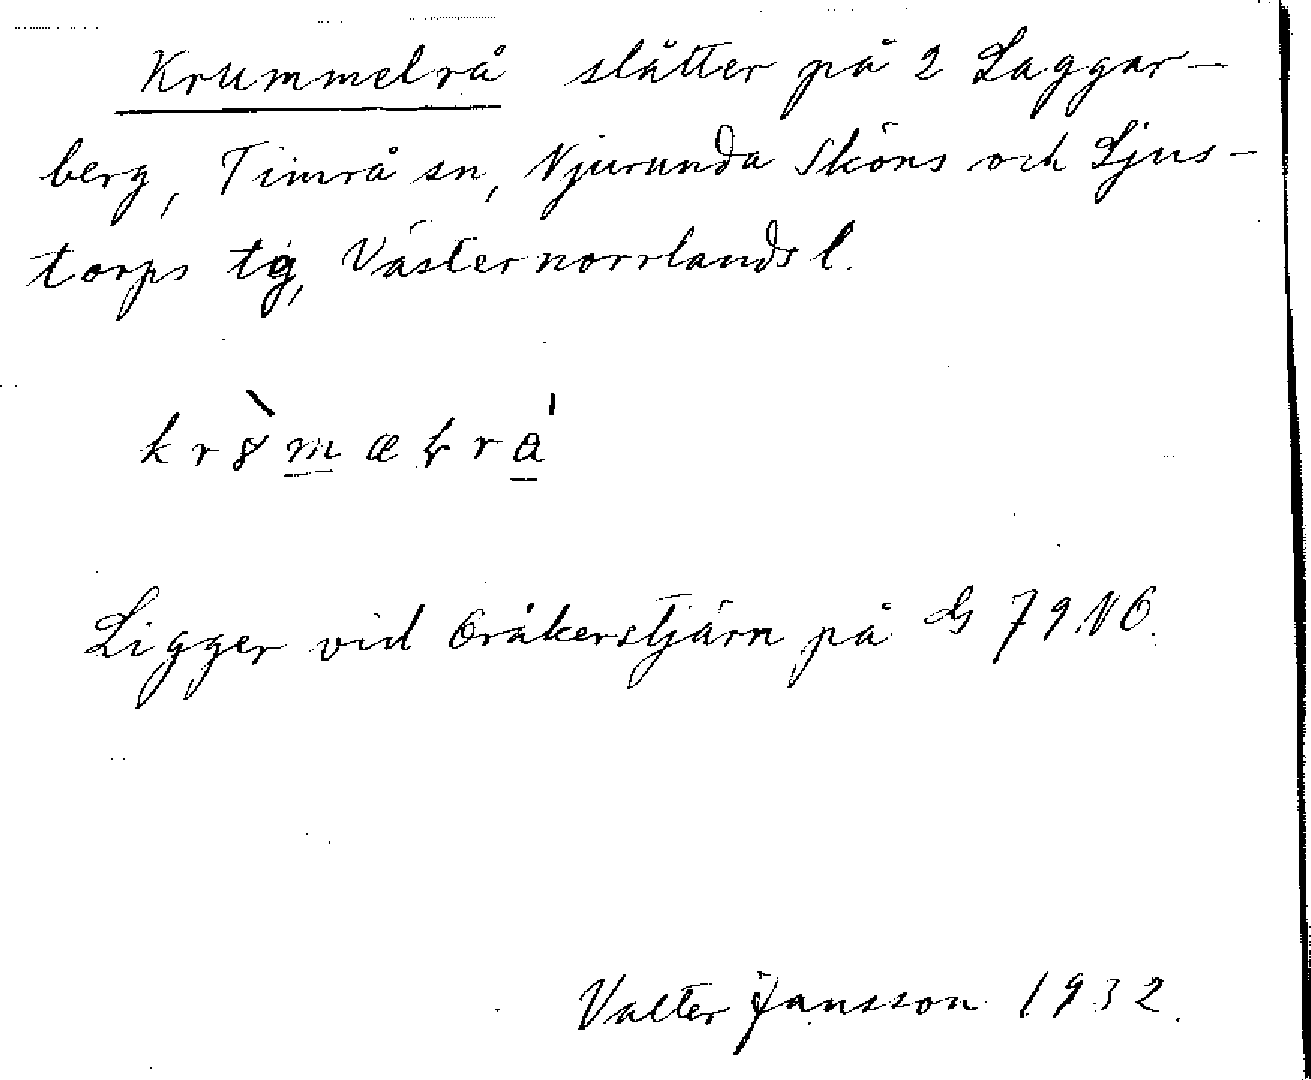 Krummelrå slåtter på 2 Laggar-
berg, Timrå sn, Njurunda Sköns och Ljus-
torps tg, Västernorrlands l.
Ligger vid Oråkerstjärn på G 79 NO.
Valter Jansson 1932.